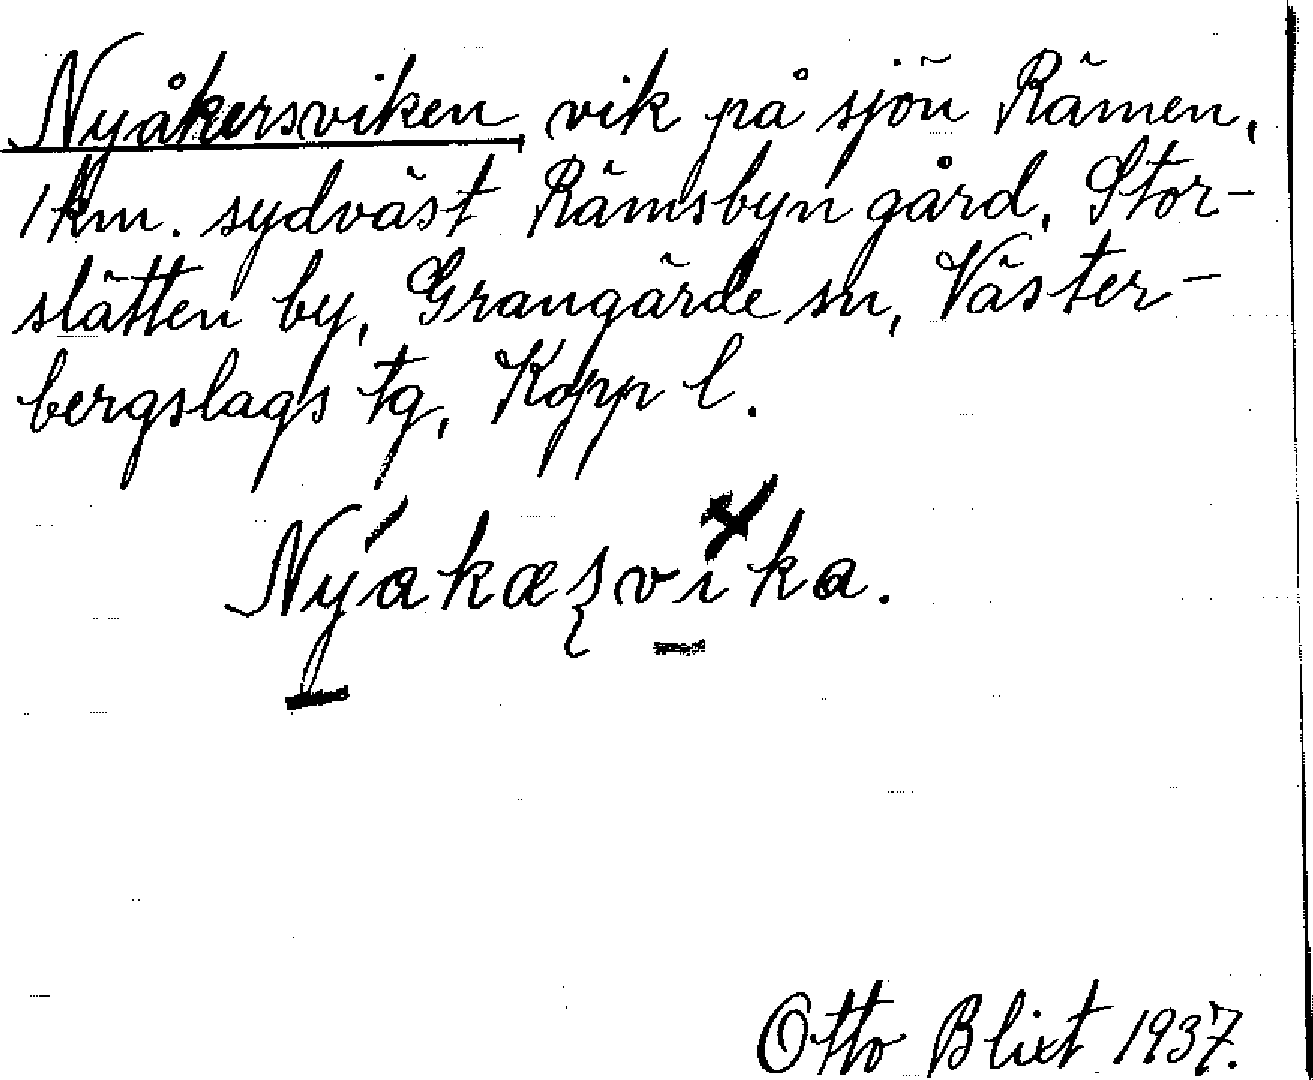 Nyåkersviken, vik på sjön Rämen,
1 km. sydväst Rämsbyn gård, Stor-
slätten by, Grangärde sn, Väster-
bergslags tg, Kopp l.
Nýakæʂvika.
Otto Blixt 1937.